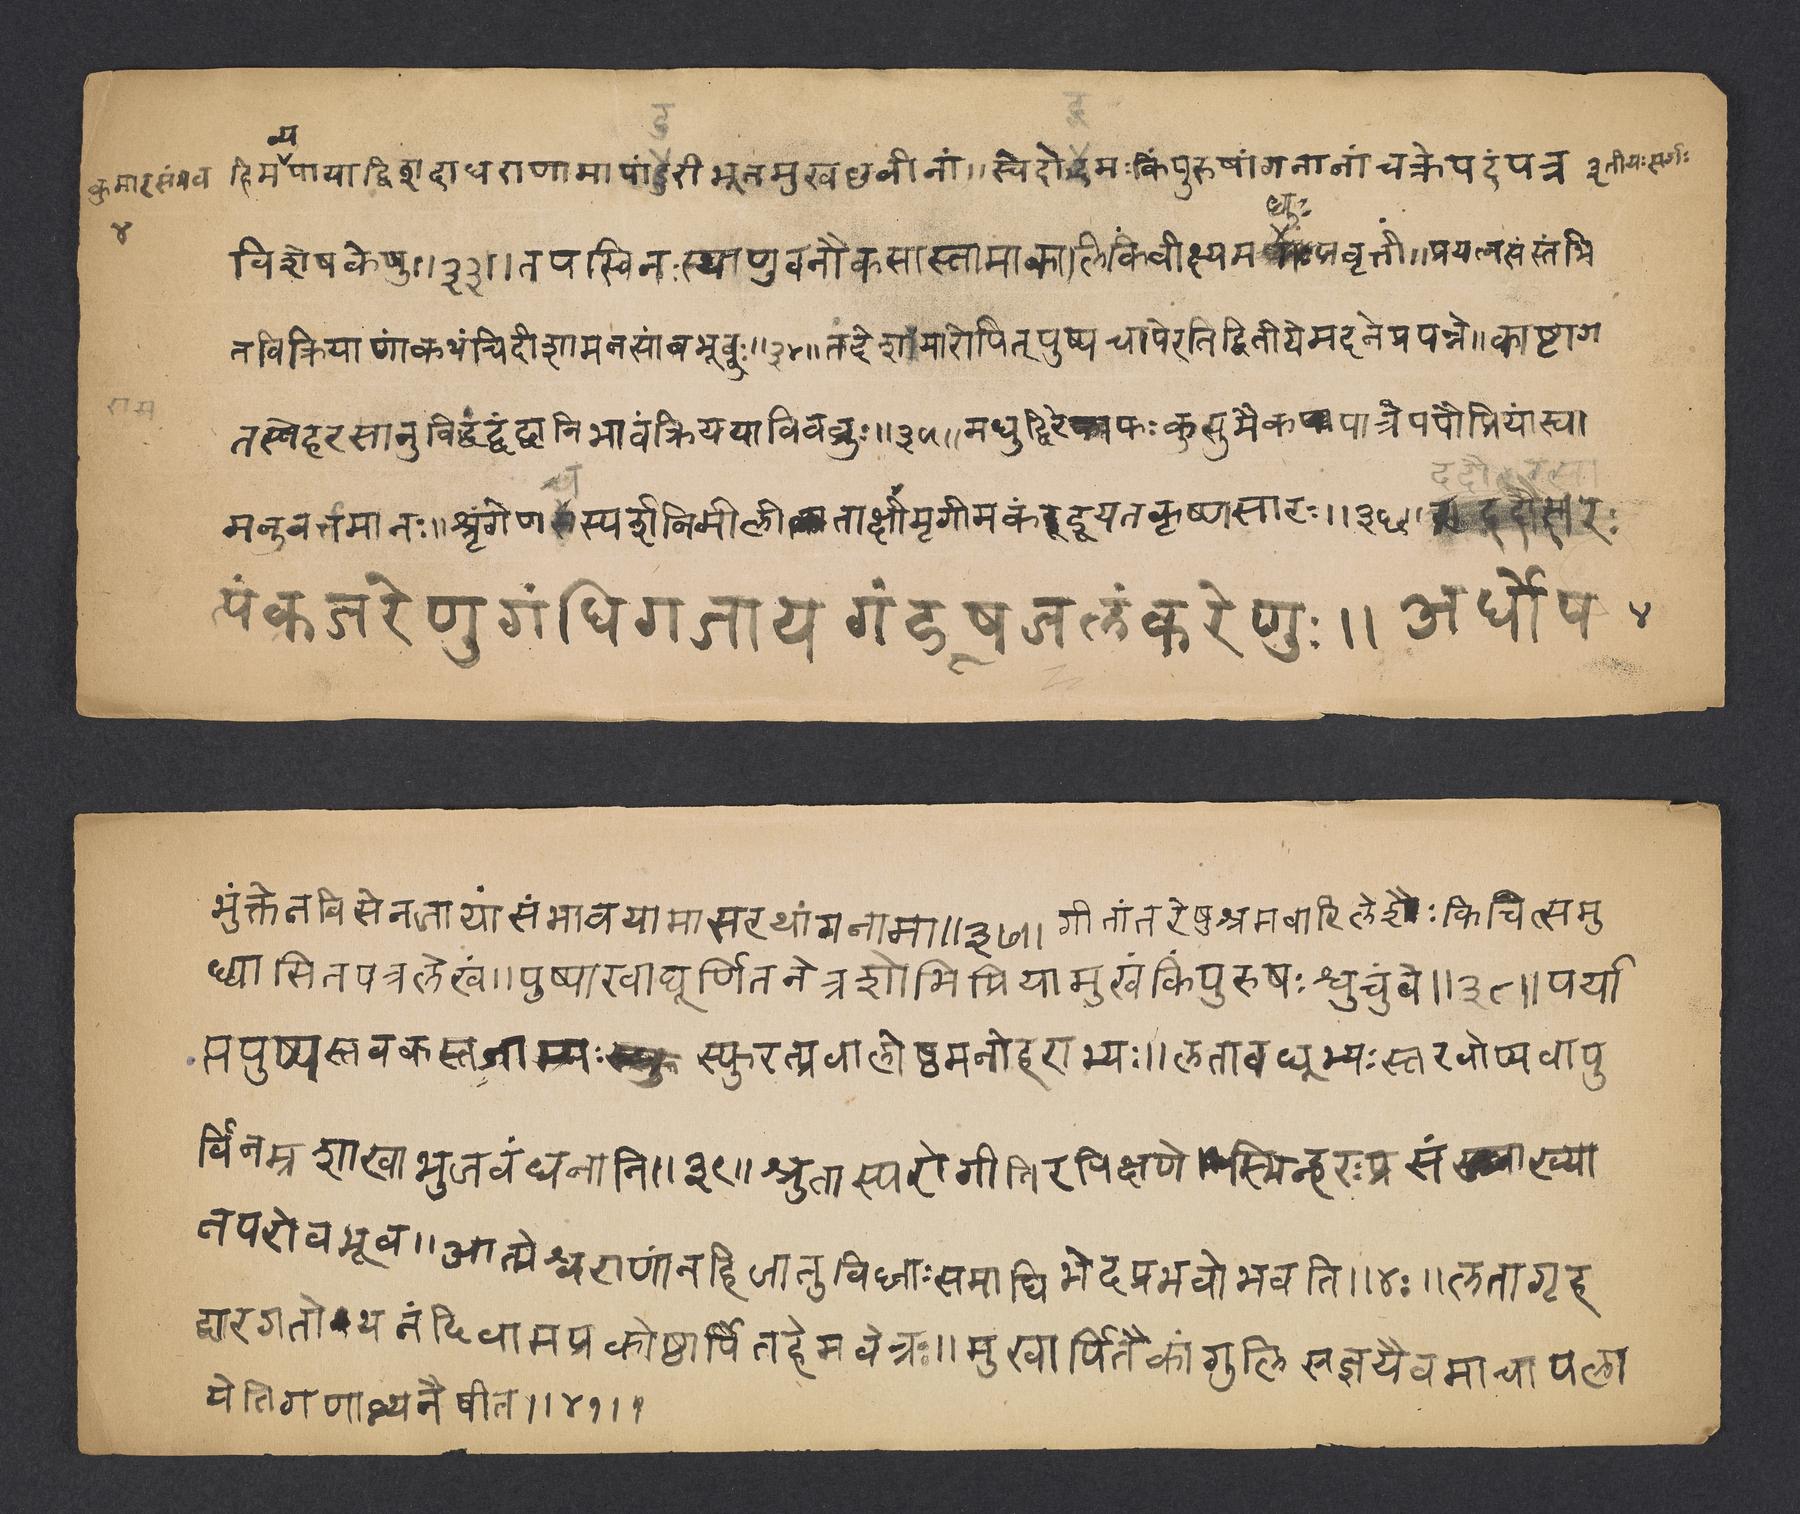 कुमारसंभव हिमव्यपायाद्विशदाधराणामापांडुरीभूतमुखछवीनां॥स्वेदोद्गमःकिंपुरुषांगनानांचक्रेपदंपत्र तृतीयःसर्गः
४
विशेषकेषु॥३३॥तपस्विनःस्थाणुवनौकसास्तामाकालिकिंवीक्ष्यमधुःप्रवृत्तीं॥प्रयत्नसंस्तंभि
तविक्रियाणांकथंचिदीशामनसांबभूवुः॥३४॥तंदेशमारोपितपुष्पचापेरतिद्वितीयेमदनेप्रपन्ने॥काष्टाग
राम
तस्नेहरसानुविद्धंद्वंद्वानिभावंक्रिययाविवव्रुः॥३५॥मधुद्विरेफःकुसुमैकपात्रेपपौप्रियांस्वा
मनुवर्त्तमानः॥श्रृंगेणचस्पर्शनिमीलीताक्षींमृगीमकंडूयतकृष्णसारः॥३६॥ददौसरः
त्पंकजरेणुगंधिगजायगंडूषजलंकरेणुः॥अर्धोप ४
भुंक्तेनबिसेनजायांसंभावयामासरथांगनामा॥३७॥गीतांतरेषुश्रमवारिलेशैःकिचित्समु
ध्वासितपत्रलेखं॥पुष्पासवाघूर्णितनेत्रशोभिप्रियामुखंकिंपुरुषःश्चुचुंबे॥३८॥पर्या
प्तपुष्पस्तवकस्तनाभ्यः स्फुरत्प्रवालोष्ठमनोहराभ्यः॥लतावधूभ्यःस्तरवोप्यवापु
र्विनम्रशाखाभुजबंधनानि॥३९॥श्रुताप्सरोगीतिरपिक्षणेस्मिन्हरःप्रसंख्या
नपरोबभूव॥आत्मेश्वराणांनहिजातुविघ्नाःसमाधिभेदप्रभवोभवति॥४०॥लतागृह
द्वारगतोथनंदिवामप्रकोष्ठार्पितहेमवेत्रः॥मुखार्पितैकांगुलिसज्ञयैवमाचापला
येतिगणाव्यनैषीत॥४१॥